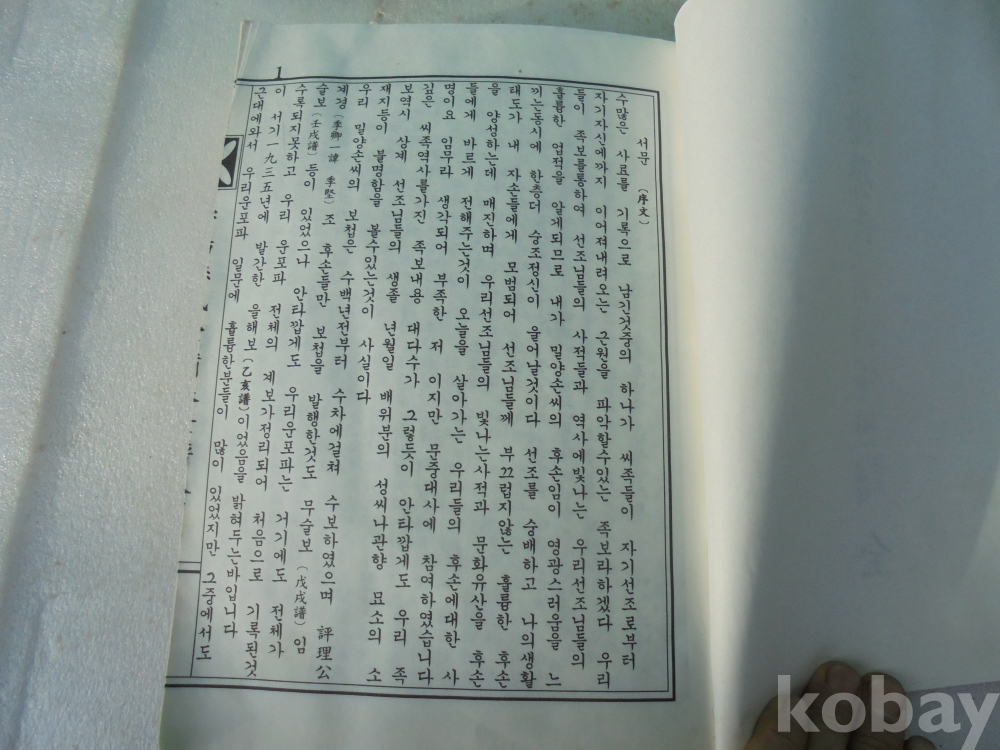 서문 (序文)
수많은 사료를 기록으로 남긴것중의 하나가 씨족들이 자기선조로부터
자기자신에까지 이어져내려오는 근원을 파악할수있는 족보라하겠다 우리
들이 족보를통하여 선조님들의 사적들과 역사에빛나는 우리선조님들의
훌륭한 업적을 알게되므로 내가 밀양손씨의 후손임이 영광스러움을 느
끼는동시에 한층더 숭조정신이 들어날것이다 선조를 숭배하고 나의생활
태도가 내 자손들에게 모범되어 선조님들께 부끄럽지않는 훌륭한 후손
을 양성하는데 매진하며 우리선조님들의 빛나는사적과 문화유산을 후손
들에게 바르게 전해주는것이 오늘을 살아가는 우리들의 후손에대한 사
명이요 임무라 생각되어 부족한 저 이지만 문중대사에 참여하였습니다
깊은 씨족역사를가진 족보내용 대다수가 그렇듯이 안타깝게도 우리 족
보역시 상계 선조님들의 생졸 년월일 배위분의 성씨나관향 묘소의 소
재지등이 불명함을 볼수있는것이 사실이다
우리 밀양손씨의 보첩은 수백년전부터 수차에걸쳐 수보하였으며 評理公
계경 (季卿一諱 季堅) 조 후손들만 보첩을 발행한것도 무술보 (戊戌譜) 임
술보 (壬戌譜) 등이 있었으나 안타깝게도 우리운포파는 거기에도 전체가
수록되지못하고 우리 운포파 전체의 계보가정리되어 처음으로 기록된것
이 서기一九三五년에 발간한 을해보 (乙亥譜) 이었음을 밝혀두는바입니다
근대에와서 우리운포파 일문에 훌륭한분들이 많이 있었지만 그중에서도
1
kobay